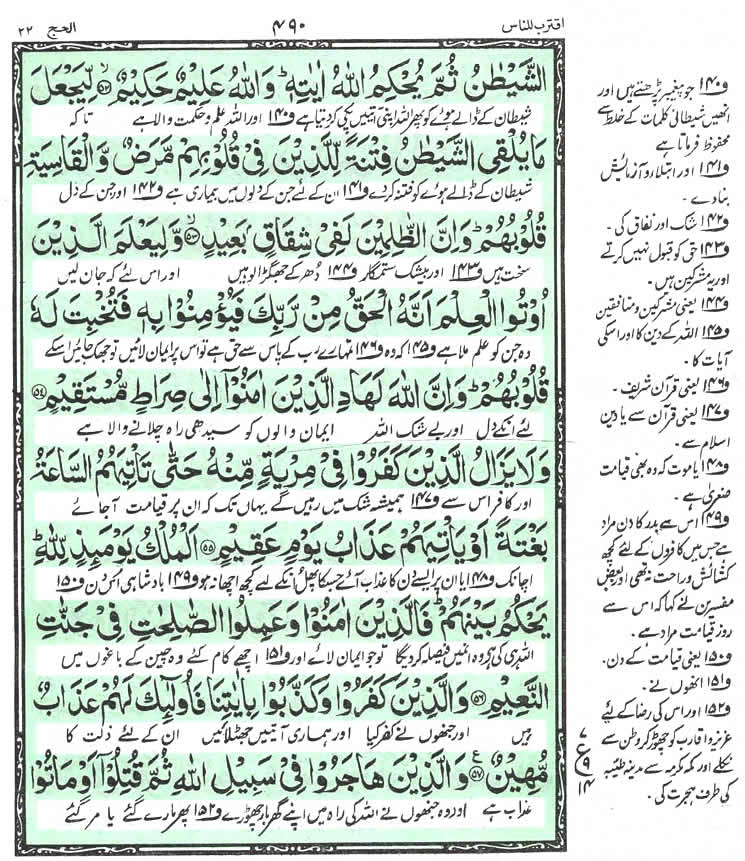 اقترب للناس
۴۹۰
الحج ۲۲
الشَّيْطٰنُ ثُمَّ يُحْكِمُ اللّٰهُ اٰيٰتِهٖ ؕ وَاللّٰهُ عَلِيْمٌ حَكِيْمٌ ۙ﴿۵۲﴾ لِّيَجْعَلَ
شیطان کے ڈالے ہوئے کو پھر اللہ اپنی آیتیں پکی کردیتا ہے ف۱۴۰ اور اللہ علم و حکمت والا ہے تا کہ
مَا يُلْقِى الشَّيْطٰنُ فِتْنَةً لِّلَّذِيْنَ فِىْ قُلُوْبِهِمْ مَّرَضٌ وَّالْقَاسِيَةِ
شیطان کے ڈالے ہوئے کو فتنہ کردے ف۱۴۱ ان کے لئے جن کے دلوں میں بیماری ہے ف۱۴۲ اور جن کے دل
قُلُوْبُهُمْ ؕ وَاِنَّ الظّٰلِمِيْنَ لَفِىْ شِقَاقٍۭ بَعِيْدٍ ۙ﴿۵۳﴾ وَّلِيَعْلَمَ الَّذِيْنَ
سخت ہیں ف۱۴۳ اور بیشک ستمگار ف۱۴۴ دُھر کے جھگڑالو ہیں اور اس لئے کہ جان لیں
اُوْتُوا الْعِلْمَ اَنَّهُ الْحَقُّ مِنْ رَّبِّكَ فَيُؤْمِنُوْا بِهٖ فَتُخْبِتَ لَهٗ
وہ جن کو علم ملا ہے ف۱۴۵ کہ وہ ف۱۴۶ تمہارے رب کے پاس سے حق ہے تو اس پر ایمان لائیں تو جھک جائیں اسکے
قُلُوْبُهُمْ ؕ وَاِنَّ اللّٰهَ لَهَادِ الَّذِيْنَ اٰمَنُوْۤا اِلٰى صِرَاطٍ مُّسْتَقِيْمٍ ﴿۵۴﴾
لئے انکے دل اور بے شک اللہ ایمان والوں کو سیدھی راہ چلانے والا ہے
وَلَا يَزَالُ الَّذِيْنَ كَفَرُوْا فِىْ مِرْيَةٍ مِّنْهُ حَتّٰى تَاْتِيَهُمُ السَّاعَةُ
اور کافر اس سے ف۱۴۷ ہمیشہ شک میں رہیں گے یہاں تک کہ ان پر قیامت آجائے
بَغْتَةً اَوْ يَاْتِيَهُمْ عَذَابُ يَوْمٍ عَقِيْمٍ ﴿۵۵﴾ اَلْمُلْكُ يَوْمَئِذٍ لِّلّٰهِ ؕ
اچانک ف۱۴۸ یا ان پر ایسے دن کا عذاب آئے جسکا پھل انکے لیے کچھ اچھا نہ ہو ف۱۴۹ بادشاہی اس دن ف۱۵۰
يَحْكُمُ بَيْنَهُمْ ؕ فَالَّذِيْنَ اٰمَنُوْا وَعَمِلُوا الصّٰلِحٰتِ فِىْ جَنّٰتِ
اللہ ہی کی ہے وہ انمیں فیصلہ کردیگا تو جو ایمان لائے اور ف۱۵۱ اچھے کام کئے وہ چین کے باغوں میں
النَّعِيْمِ ﴿۵۶﴾ وَالَّذِيْنَ كَفَرُوْا وَكَذَّبُوْا بِاٰيٰتِنَا فَاُولٰٓئِكَ لَهُمْ عَذَابٌ
ہیں اور جنھوں نے کفر کیا اور ہماری آیتیں جھٹلائیں ان کے لئے ذلت کا
مُّهِيْنٌ ﴿۵۷﴾ وَالَّذِيْنَ هَاجَرُوْا فِىْ سَبِيْلِ اللّٰهِ ثُمَّ قُتِلُوْۤا اَوْ مَاتُوْا
عذاب ہے اور وہ جنھوں نے اللہ کی راہ میں اپنے گھر بار چھوڑے ف۱۵۲ پھر مارے گئے یا مر گئے
ف۱۴۰ جو پیغمبر پڑھتے ہیں اور
انھیں شیطانی کلمات کے خلط سے
محفوظ فرماتا ہے
ف۱۴۱ اور ابتلاء و آزمایش
بنادے۔
ف۱۴۲ شک اور نفاق کی۔
ف۱۴۳ حق کو قبول نہیں کرتے
اور یہ مشرکین ہیں۔
ف۱۴۴ یعنی مشرکین و منافقین
ف۱۴۵ اللہ کے دین کا اور اسکی
آیات کا۔
ف۱۴۶ یعنی قرآن شریف۔
ف۱۴۷ یعنی قرآن سے یا دین
اسلام سے۔
ف۱۴۸ یا موت کہ وہ بھی قیامت
صغریٰ ہے۔
ف۱۴۹ اس سے بدر کا دن مراد
ہے جس میں کافروں کے لئے کچھ
کشائش و راحت نہ تھی اور بعض
مفسرین نے کہا کہ اس سے
روز قیامت مراد ہے۔
ف۱۵۰ یعنی قیامت کے دن۔
ف۱۵۱ انھوں نے۔
ف۱۵۲ اور اس کی رضا کے لئے
عزیز و اقارب کو چھوڑ کر وطن سے
نکلے اور مکہ مکرمہ سے مدینہ طیبہ
کی طرف ہجرت کی۔
۷
ع
۹
۱۴